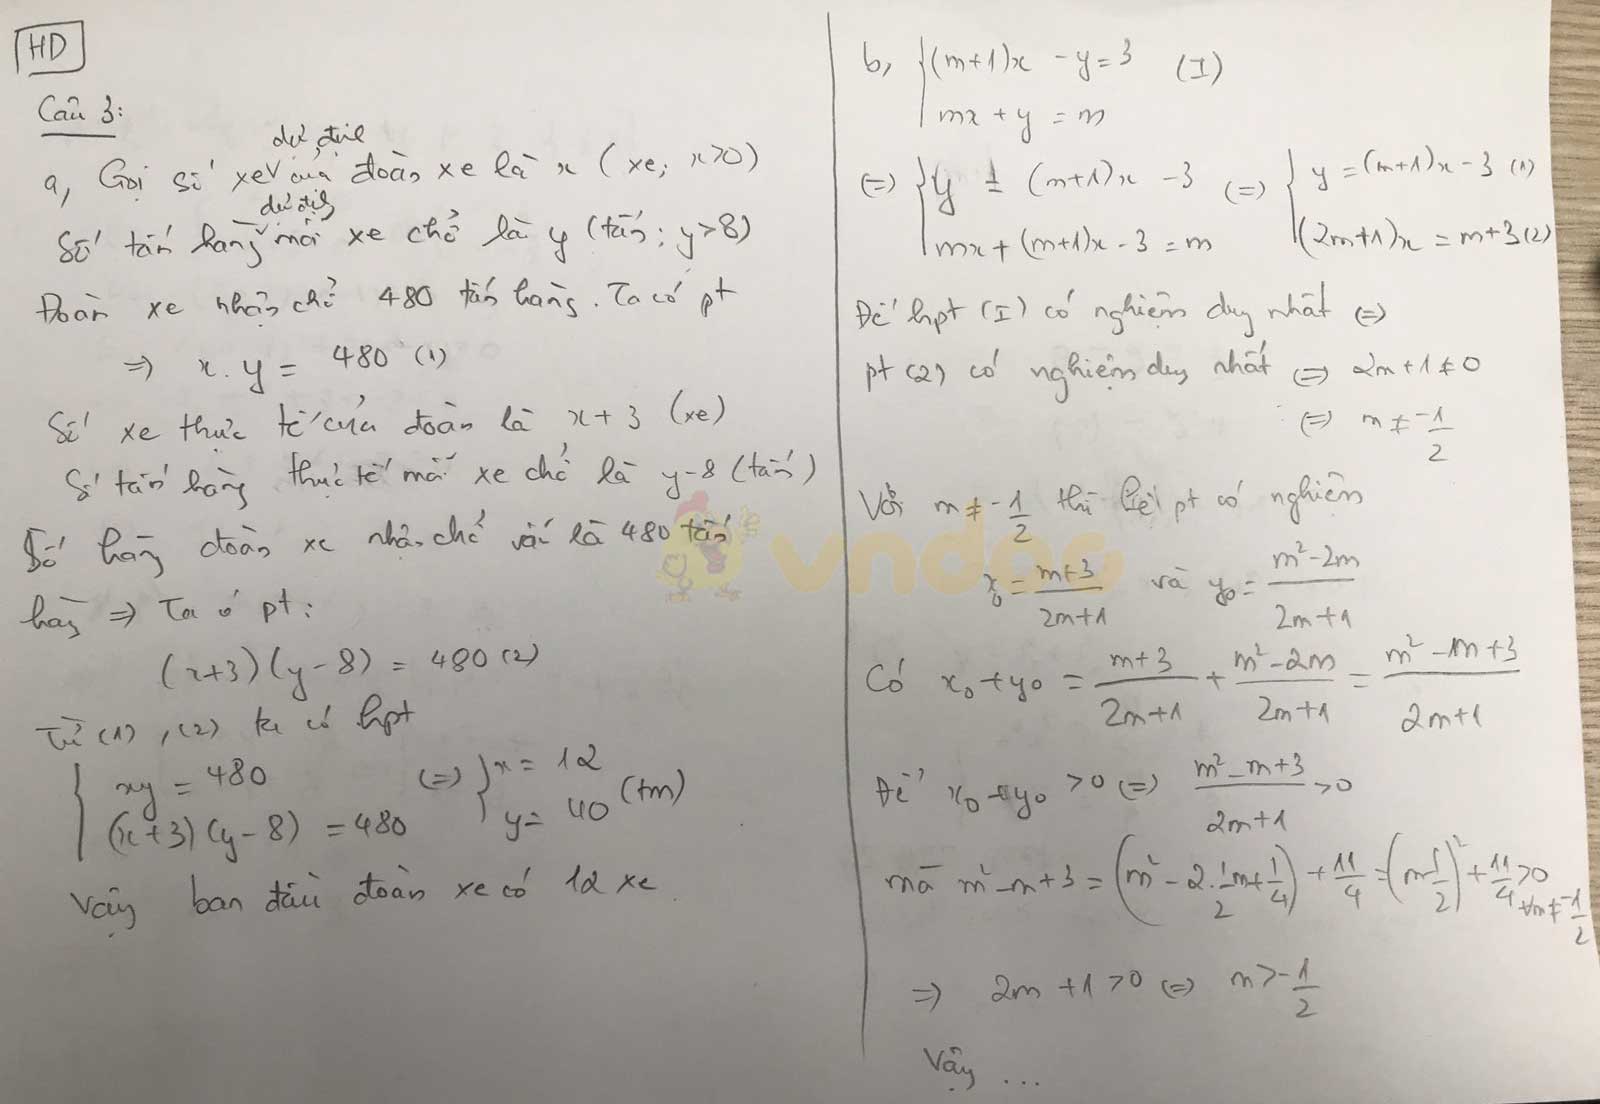 HD
Câu 3:
dự định
a, Gọi số xe của đoàn xe là x (xe; x>0)
dự định
Số tấn hàng mỗi xe chở là y (tấn; y>8)
Đoàn xe nhận chở 480 tấn hàng. Ta có pt
=> x.y = 480 (1)
Số xe thực tế của đoàn là x+3 (xe)
Số tấn hàng thực tế mỗi xe chở là y-8 (tấn)
Số hàng đoàn xe nhận chở vẫn là 480 tấn
hàng => Ta có pt:
(x+3)(y-8) = 480 (2)
Từ (1), (2) ta có hpt
{ xy = 480 (=) { x = 12
(x+3)(y-8) = 480 y = 40 (tm)
Vậy ban đầu đoàn xe có 12 xe
b, { (m+1)x - y = 3 (I)
mx + y = m
(=) { y = (m+1)x - 3 (=) { y = (m+1)x - 3 (1)
mx + (m+1)x - 3 = m (2m+1)x = m+3 (2)
Để hpt (I) có nghiệm duy nhất (=)
pt (2) có nghiệm duy nhất (=) 2m+1 ≠ 0
(=) m ≠ -1/2
Với m ≠ -1/2 thì hệ pt có nghiệm
x₀ = (m+3)/(2m+1) và y₀ = (m²-2m)/(2m+1)
Có x₀+y₀ = (m+3)/(2m+1) + (m²-2m)/(2m+1) = (m²-1m+3)/(2m+1)
Để x₀+y₀ >0 (=) (m²-m+3)/(2m+1) >0
mà m²-m+3 = (m²-2.1/2m+1/4)+11/4 = (m-1/2)²+11/4 >0 ∀m≠-1/2
=> 2m+1>0 (=) m>-1/2
Vậy ...
vndoc